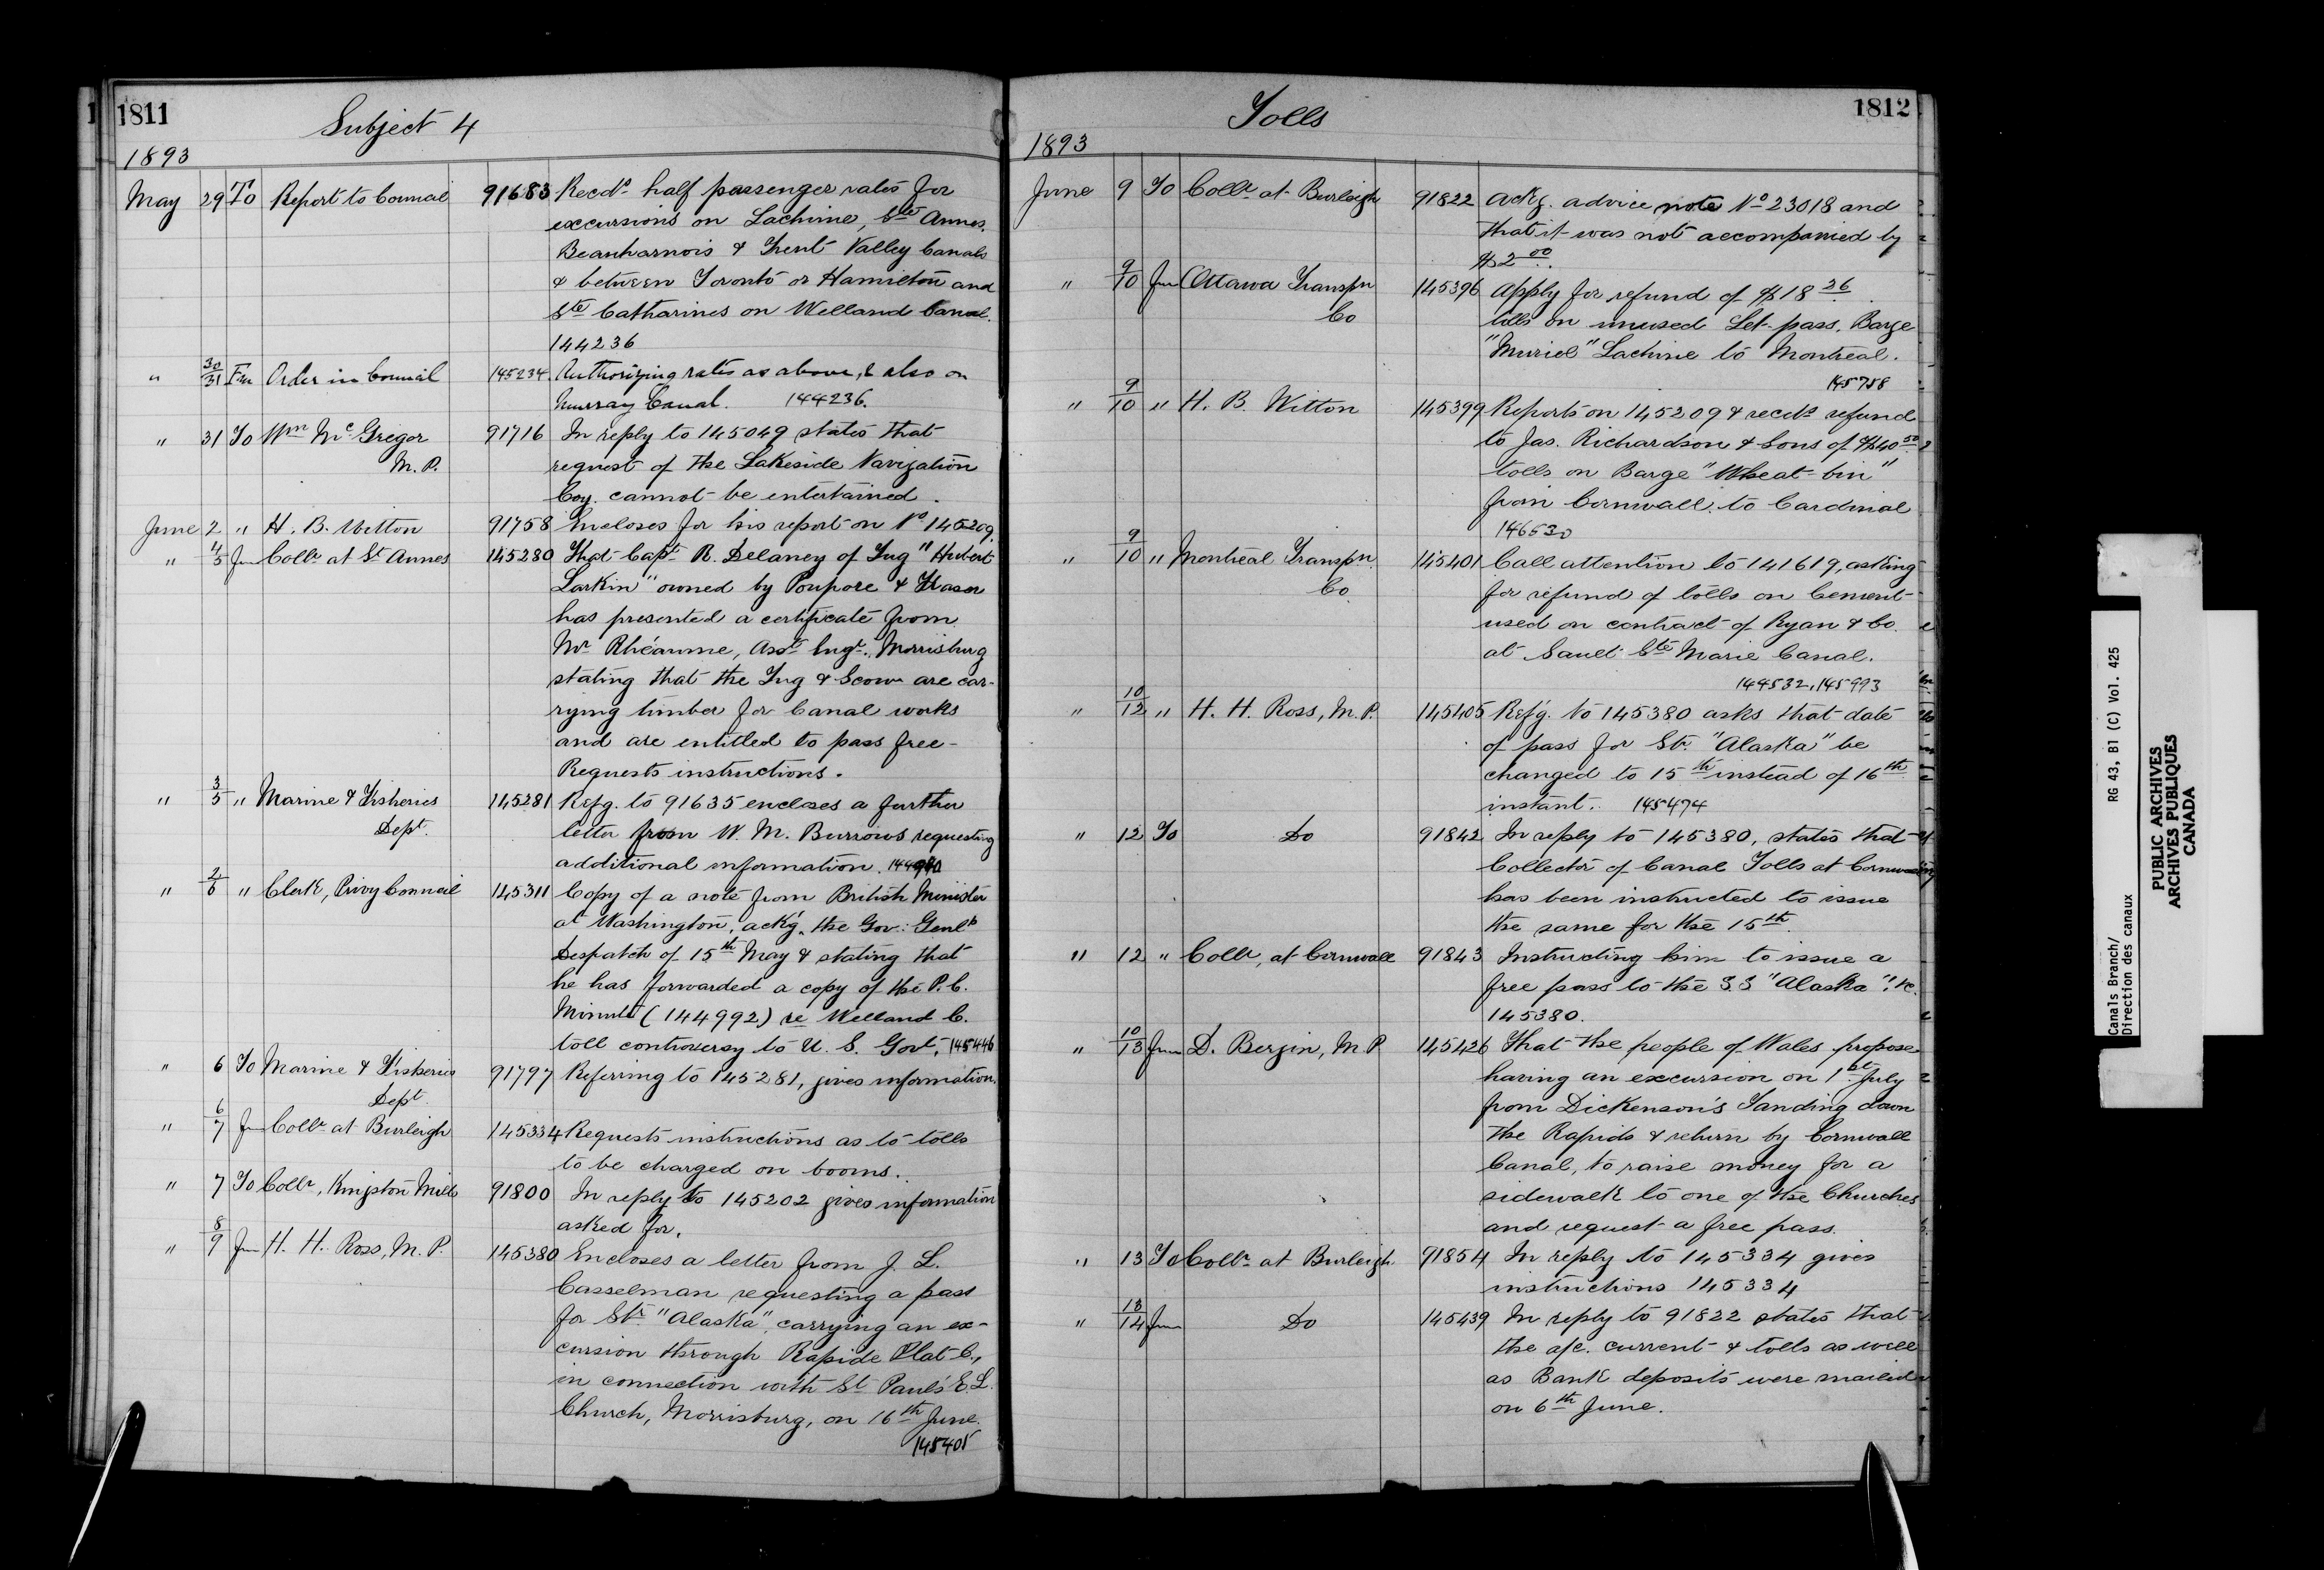 1811
Subject 4
1893
May 29 To Report to Council 91683 Recds half passenger rates for
excursions on Lachine, Ste Annes,
Beauharnois & Trent Valley Canals
& between Toronto or Hamilton and
Ste Catharines on Welland Canal.
144236
" 30/31 Fm Order in Council 145234. Authorizing rates as above, & also on
Murray Canal. 144236.
" 31 To Wm McGregor 91716 In reply to 145049 states that
M. P. request of the Lakeside Navigation
Coy. cannot be entertained.
June 2 " H. B. Witton 91758 Encloses for his report on No 145209.
" 4/5 Fm Collr at St Annes 145280 That Capt R. Delaney of Tug "Hubert
Larkin" owned by Poupore & Fraser
has presented a certificate from
Mr Rhéaume, Asst Engr. Morrisburg
stating that the Tug & Scow are car-
rying timber for Canal works
and are entitled to pass free-
Requests instructions.
" 3/5 " Marine & Fisheries 145281 Refg. to 91635 encloses a further
Dept. letter from W. M. Burrows requesting
additional information.
" 2/6 " Clerk, Privy Council 145311 Copy of a note from British Minister
at Washington, ackg. the Gov: Genls
Despatch of 15th May & stating that
he has forwarded a copy of the P. C.
Minute (144992) re Welland C.
toll controversy to U. S. Govt. 145446
" 6 To Marine & Fisheries 91797 Referring to 145281, gives information.
Dept
" 6/7 Fm Collr at Burleigh 145334 Requests instructions as to tolls
to be charged on booms.
" 7 To Collr, Kingston Mills 91800 In reply to 145202 gives information
asked for.
" 8/9 Fm H. H. Ross, M. P. 145380 Encloses a letter from J. L.
Casselman requesting a pass
for Str. "Alaska", carrying an ex-
cursion through Rapide Plat C.,
in connection with St Paul's E. L.
Church, Morrisburg, on 16th June.
145405
Tolls
1812
1893
June 9 To Collr at Burleigh 91822 Ackg. advice note No 23018 and
that it was not accompanied by
$2.00.
" 9/10 Fm Ottawa Transpn 145396 Apply for refund of $18 36
Co tolls on unused Let-pass, Barge
"Muriel" Lachine to Montreal.
145758
" 9/10 " H. B. Witton 145399 Reports on 145209 & recds refund
to Jas. Richardson & Sons of $40 50
tolls on Barge "Wheat-bin"
from Cornwall to Cardinal
146530
" 9/10 " Montreal Transpn 145401 Call attention to 141619, asking
Co. for refund of tolls on Cement
used on contract of Ryan & Co.
at Sault Ste Marie Canal.
144532, 145993
" 10/12 " H. H. Ross, M. P. 145405 Ref'g. to 145380 asks that date
of pass for Str. "Alaska" be
changed to 15th instead of 16th
instant. 145474
" 12 To Do 91842 In reply to 145380, states that
Collector of Canal Tolls at Cornwall
has been instructed to issue
the same for the 15th.
" 12 " Collr, at Cornwall 91843 Instructing him to issue a
free pass to the S.S "Alaska", &c.
145380.
" 10/13 Fm D. Bergin, M. P 145426 That the people of Wales propose
having an excursion on 1st July
from Dickenson's Landing down
the Rapids & return by Cornwall
Canal, to raise money for a
sidewalk to one of the Churches
and request a free pass.
" 13 To Collr at Burleigh 91854 In reply to 145334 gives
instructions 145334
" 13/14 Fm Do 145439 In reply to 91822 states that
the a/c. current & tolls as well
as Bank deposits were mailed
on 6th June.
Canals Branch/
Direction des canaux
RG 43, B1 (C) Vol. 425
PUBLIC ARCHIVES
ARCHIVES PUBLIQUES
CANADA